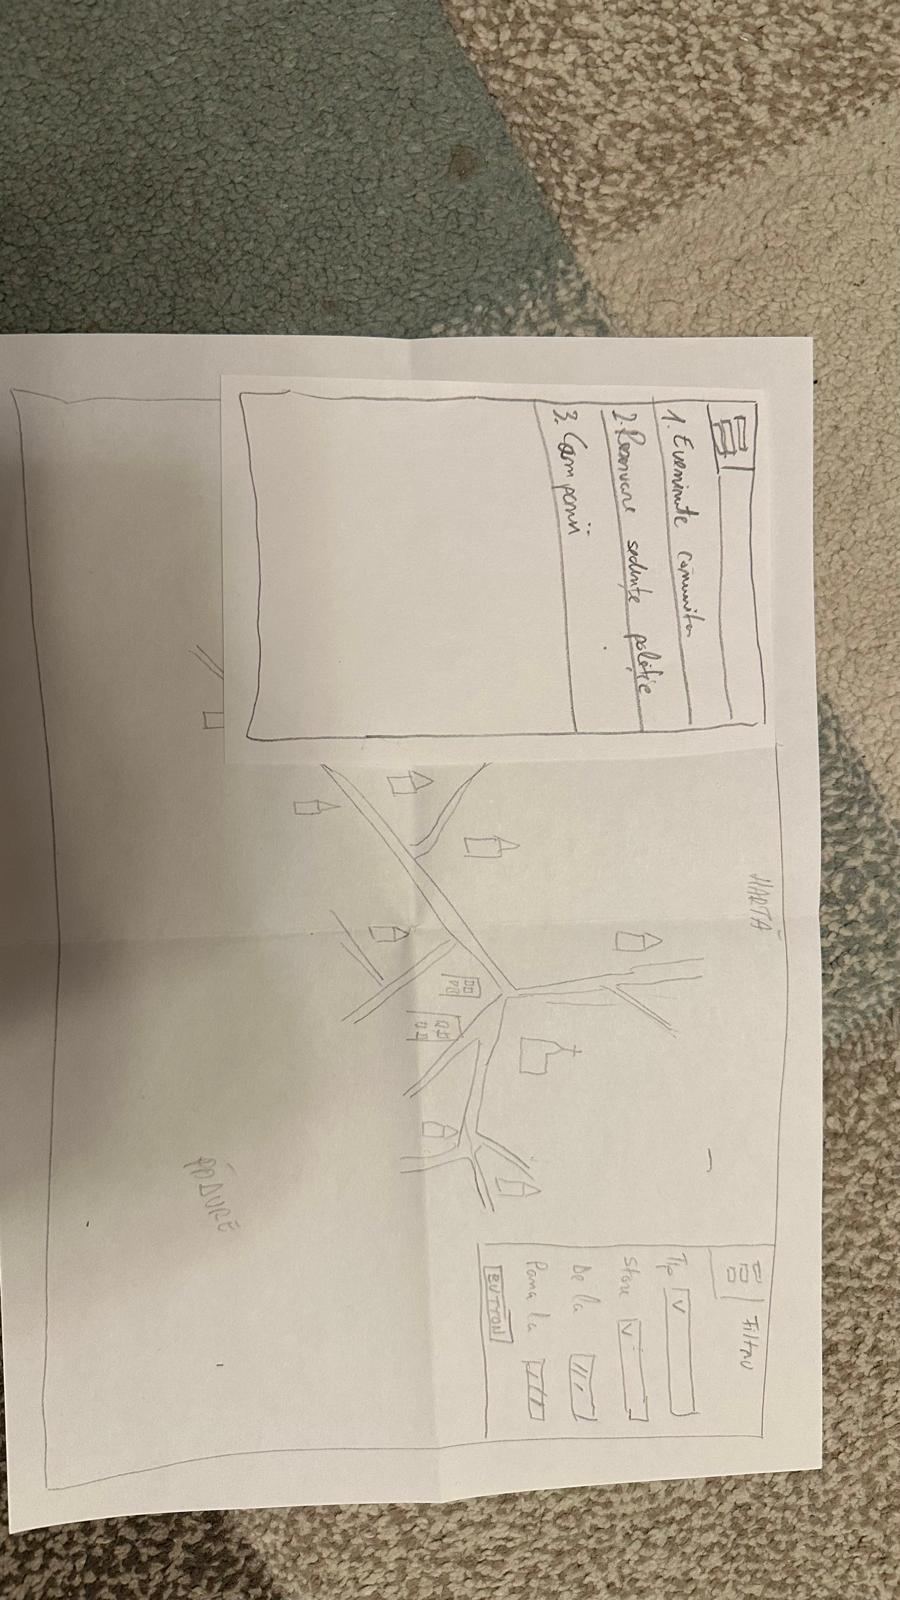 HARTĂ
1. Evenimnte comunita
2. Rezervare sedințe poliție
3. Campanii
Filtru
Tip V
Stare V
De la
Pana la
BUTTON
PĂDURE